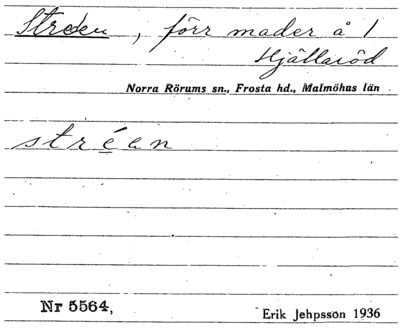 Strden, förr mader å 1
Hjällaröd
Norra Rörums sn., Frosta hd., Malmöhus län
stréen
Nr 5564,
Erik Jehpsson 1936